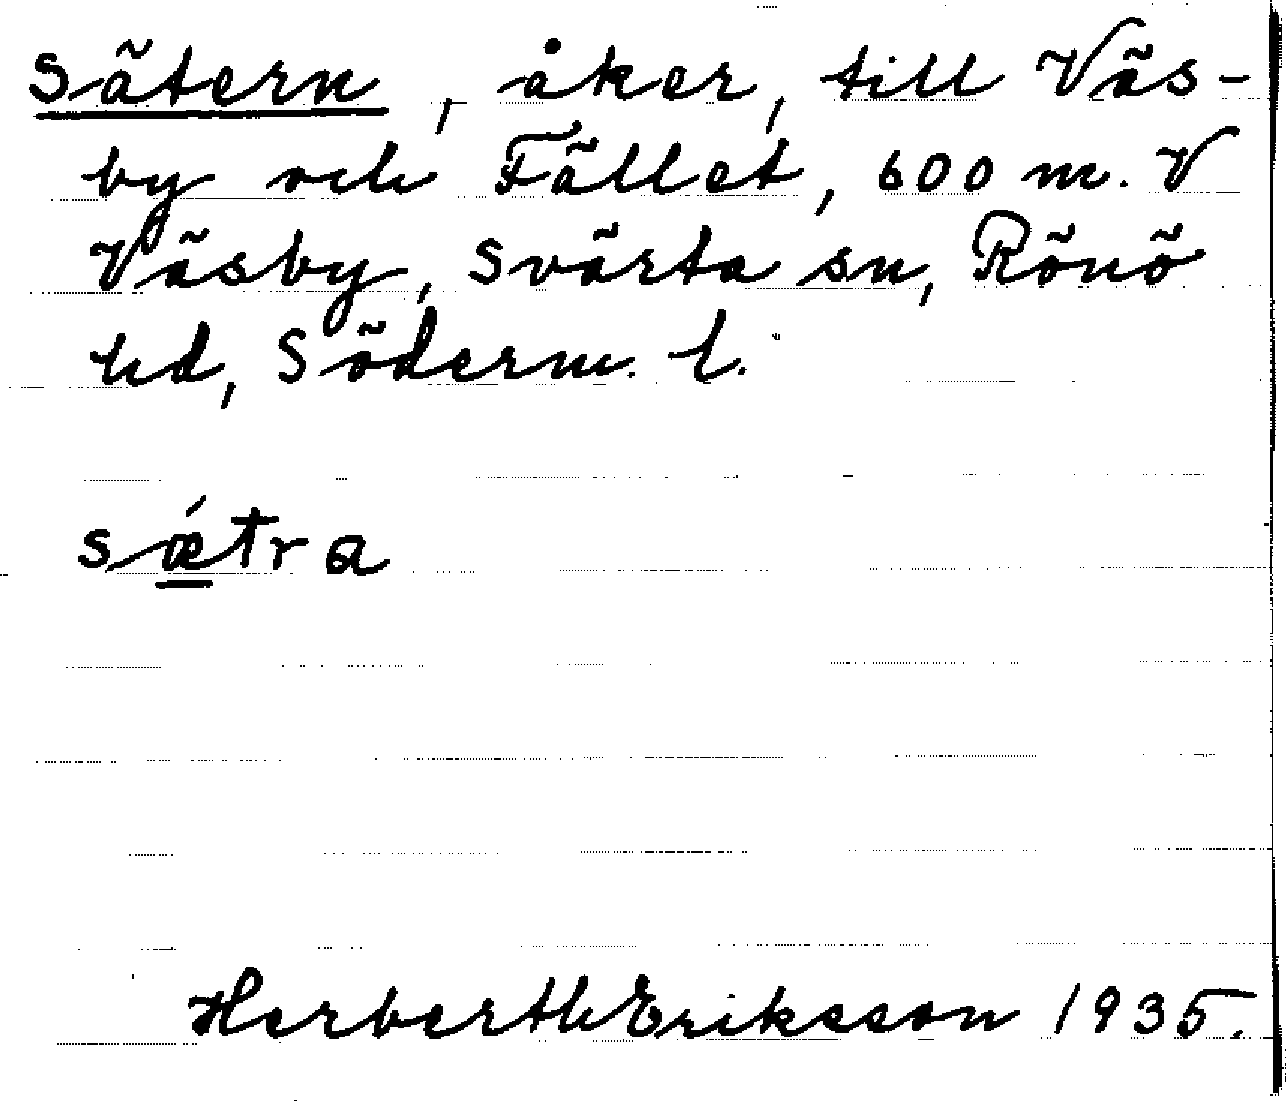 Sätern, åker, till Väs-
by och Fället, 600 m. V
Väsby, Svärta sn, Rönö
hd, Söderm. l.
sǽtra
Herberth Eriksson 1935.